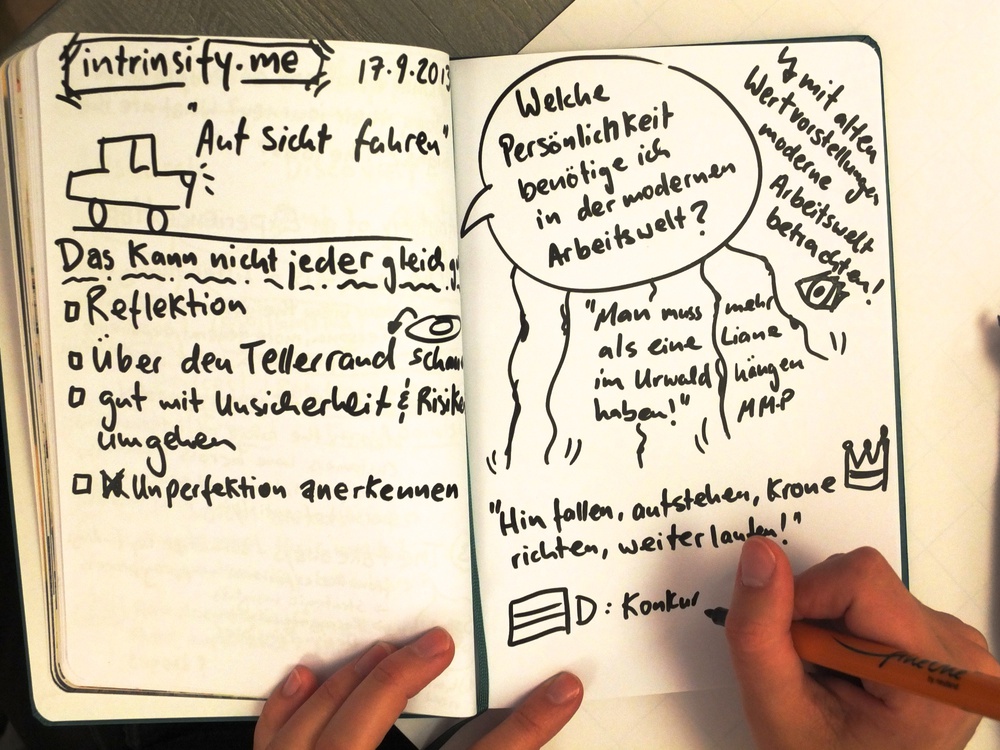 intrinsify.me 17.9.2013
"Auf Sicht fahren"
Das kann nicht jeder gleich
Reflektion
Über den Tellerrand schau
gut mit Unsicherheit & Risiko
umgehen
Unperfektion anerkennen
Welche
Persönlichkeit
benötige ich
in der modernen
Arbeitswelt?
mit alten
Wertvorstellungen
moderne
Arbeitswelt
betrachten!
"Man muss mehr
als eine Liane
im Urwald hängen
haben!" MMP
"Hinfallen, aufstehen, Krone
richten, weiterlaufen!"
D: Konkur
neuland